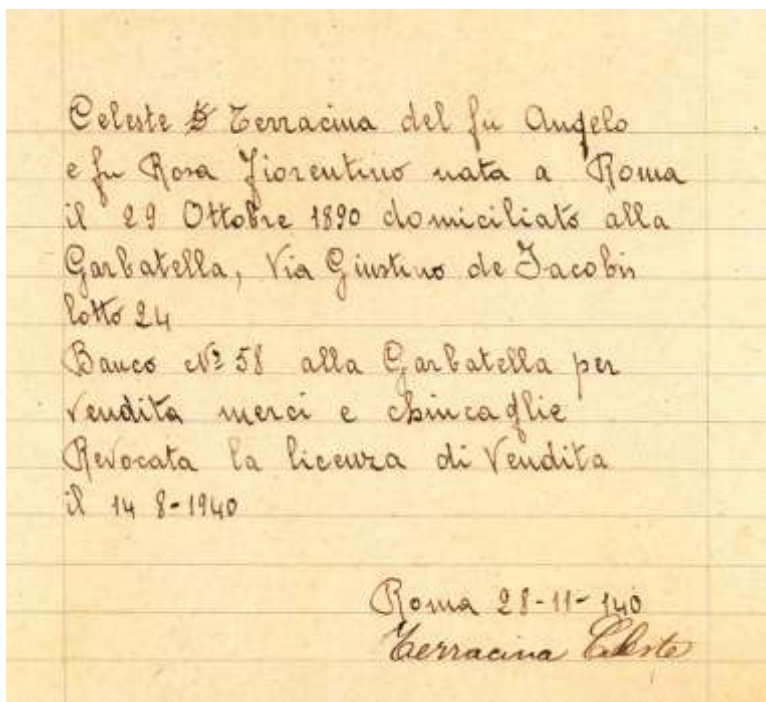 Celeste Terracina del fu Angelo
e fu Rosa Fiorentino nata a Roma
il 29 Ottobre 1890 domiciliato alla
Garbatella, Via Giustino de Jacobis
lotto 24
Banco Nº 58 alla Garbatella per
vendita merci e chincaglie
Revocata la licenza di Vendita
il 14 8-1940
Roma 28-11-140
Terracina Celeste